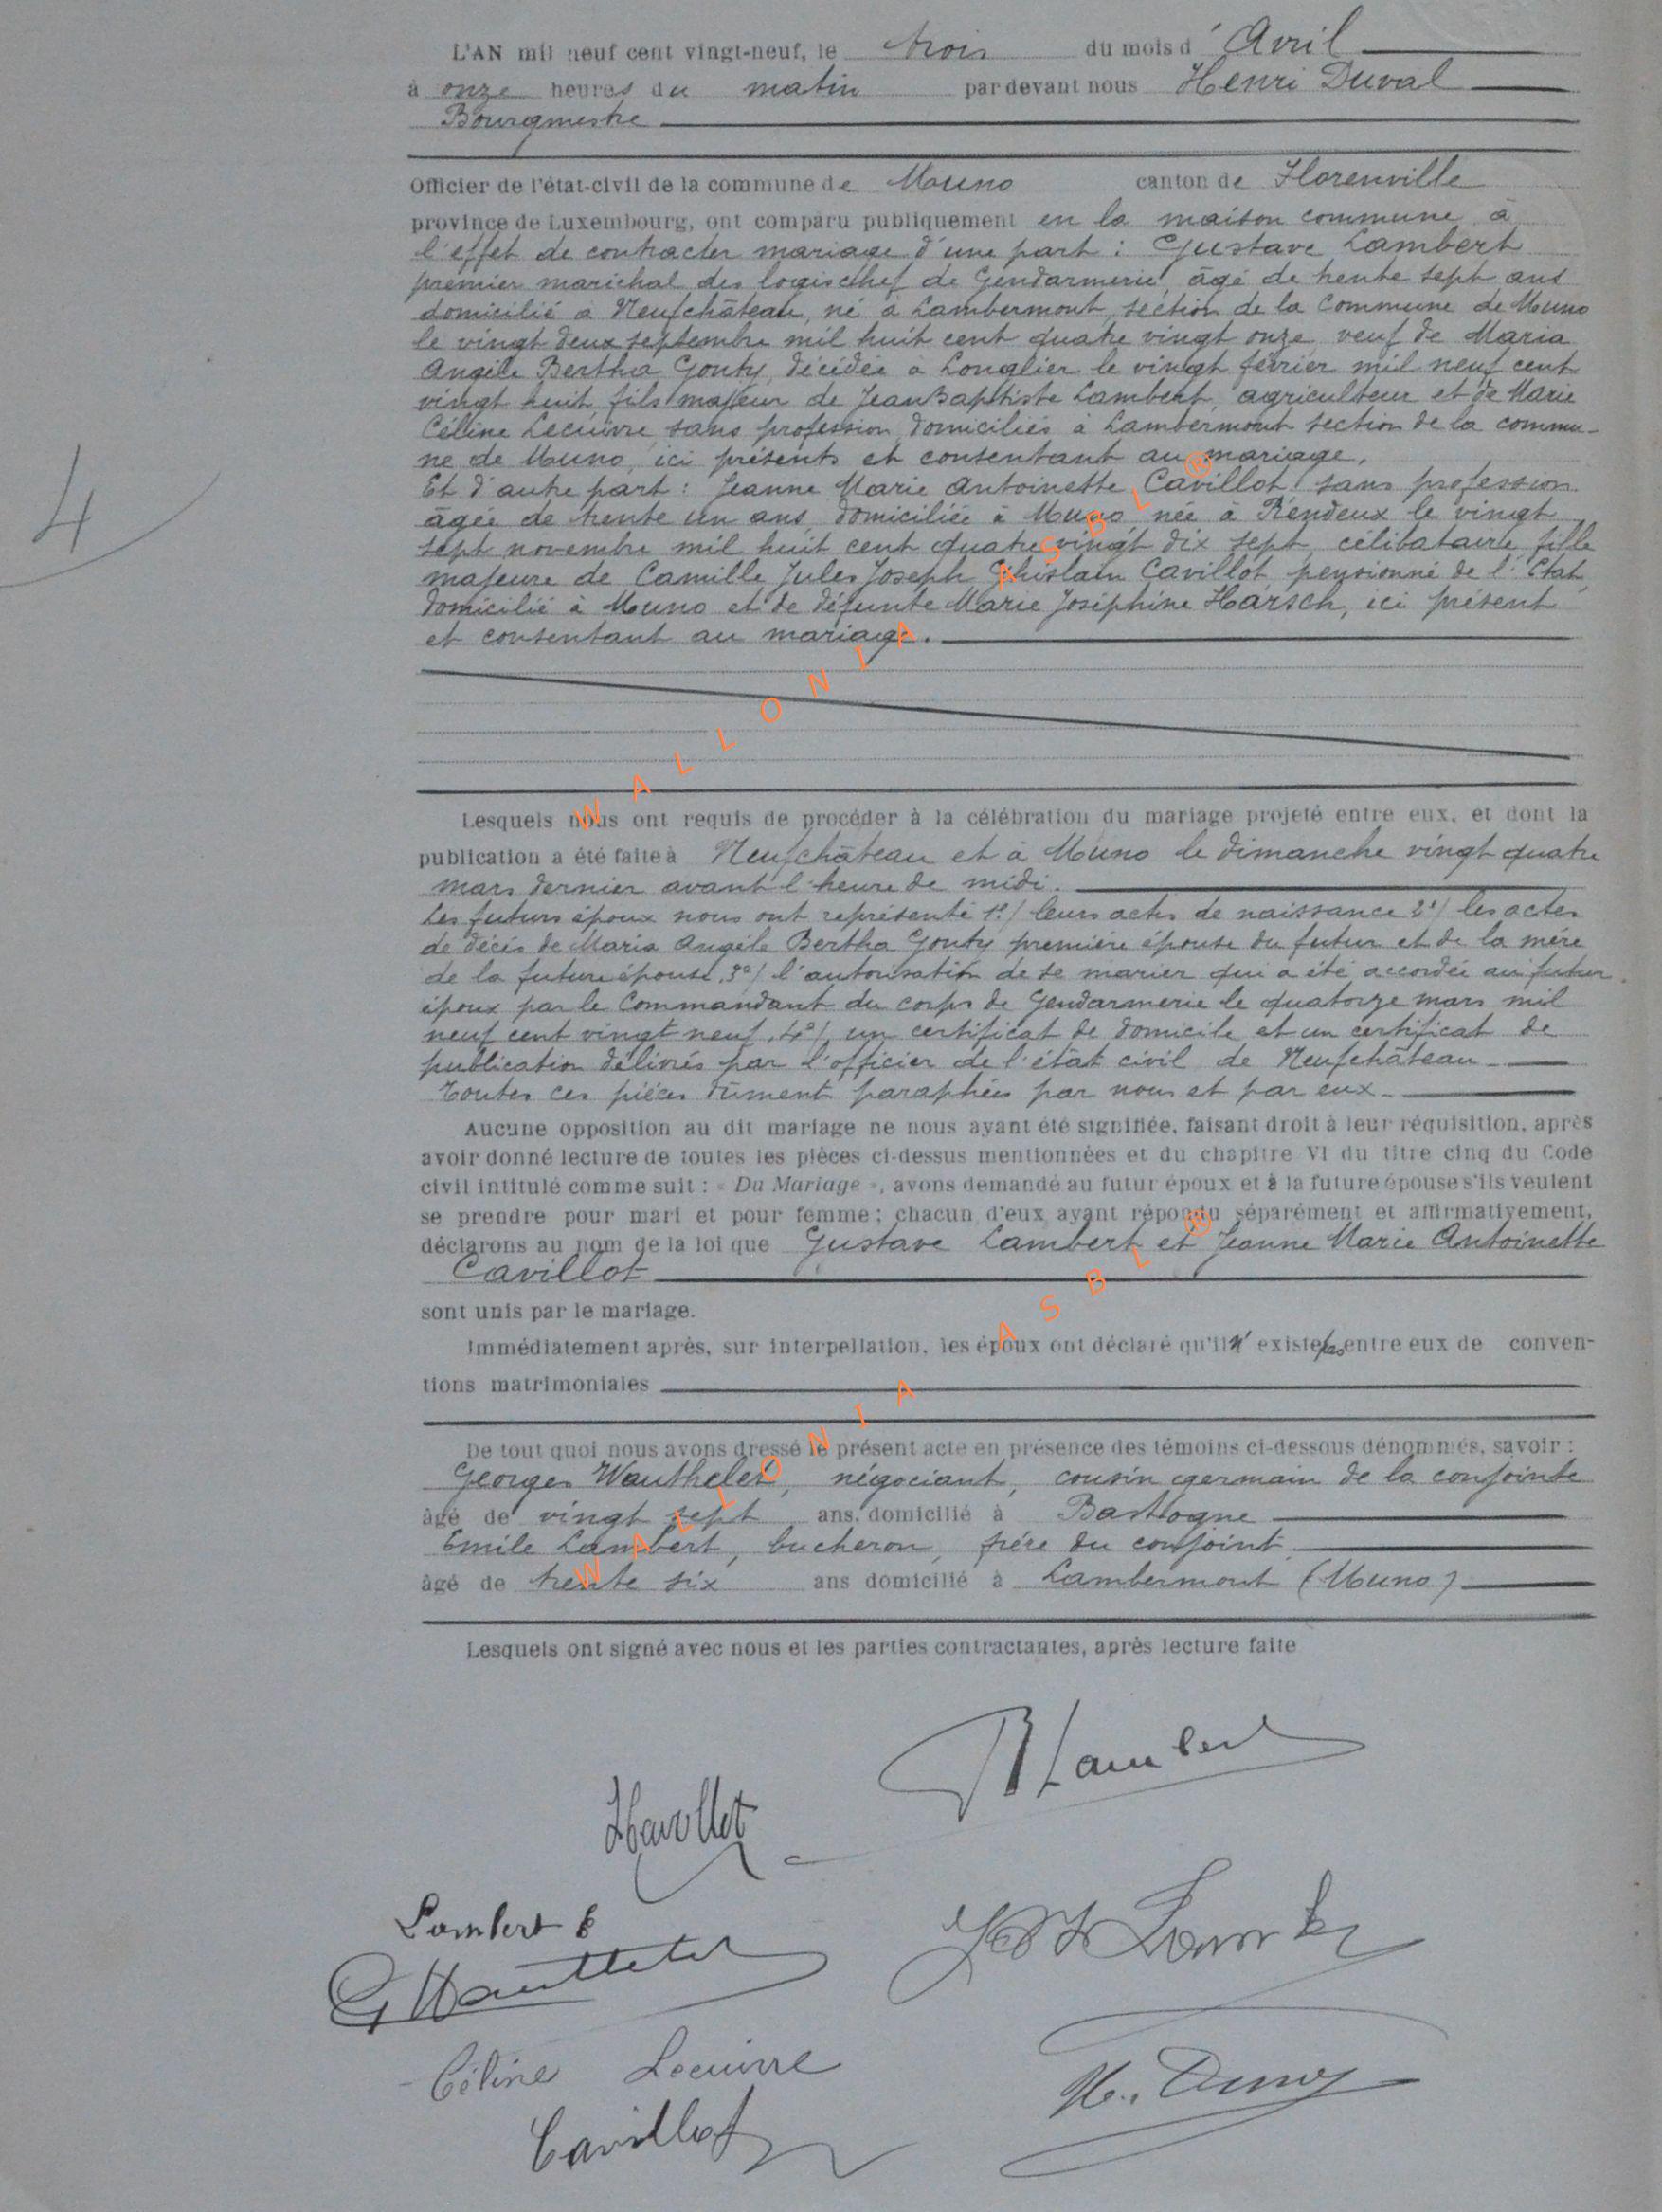 L'AN mil neuf cent vingt-neuf, le trois du mois d' Avril
à onze heures du matin par devant nous Henri Duval
Bourgmestre
Officier de l'état-civil de la commune de Muno canton de Florenville
province de Luxembourg, ont comparu publiquement en la maison commune à
l'effet de contracter mariage d'une part : Gustave Lambert
premier maréchal des logis chef de Gendarmerie, âgé de trente sept ans
domicilié à Neufchâteau, né à Lambermont, section de la commune de Muno
le vingt deux septembre mil huit cent quatre vingt onze veuf de Maria
Angèle Bertha Gouty, décédée à Longlier le vingt février mil neuf cent
vingt huit, fils majeur de Jean Baptiste Lambert, agriculteur et de Marie
Céline Lecuivre sans profession, domiciliés à Lambermont section de la commu-
ne de Muno, ici présents et consentant au mariage.
Et d'autre part : Jeanne Marie Antoinette Cavillot, sans profession
âgée de trente un ans, domiciliée à Muno née à Rendeux le vingt
sept novembre mil huit cent quatre vingt dix sept, célibataire, fille
majeure de Camille Jules Joseph Ghislain Cavillot pensionné de l'État,
domicilié à Muno et de défunte Marie Joséphine Harsch, ici présent
et consentant au mariage.
Lesquels nous ont requis de procéder à la célébration du mariage projeté entre eux, et dont la
publication a été faite à Neufchâteau et à Muno le dimanche vingt quatre
mars dernier avant l'heure de midi.
Les futurs époux nous ont représenté 1°/ leurs actes de naissance 2°/ les actes
de décès de Maria Angèle Bertha Gouty première épouse du futur et de la mère
de la future épouse, 3°/ l'autorisation de se marier qui a été accordée au futur
époux par le Commandant du corps de Gendarmerie le quatorze mars mil
neuf cent vingt neuf, 4°/ un certificat de domicile et un certificat de
publication délivrés par l'officier de l'état civil de Neufchâteau
Toutes ces pièces dûment paraphées par nous et par eux.
Aucune opposition au dit mariage ne nous ayant été signifiée, faisant droit à leur réquisition, après
avoir donné lecture de toutes les pièces ci-dessus mentionnées et du chapitre VI du titre cinq du Code
civil intitulé comme suit : « Du Mariage », avons demandé au futur époux et à la future épouse s'ils veulent
se prendre pour mari et pour femme ; chacun d'eux ayant répondu séparément et affirmativement,
déclarons au nom de la loi que Gustave Lambert et Jeanne Marie Antoinette
Cavillot
sont unis par le mariage.
Immédiatement après, sur interpellation, les époux ont déclaré qu'il n' existe pas entre eux de conven-
tions matrimoniales
De tout quoi nous avons dressé le présent acte en présence des témoins ci-dessous dénommés, savoir :
Georges Wauthelet, négociant, cousin germain de la conjointe
âgé de vingt sept ans, domicilié à Bastogne
Emile Lambert, bucheron, frére du conjoint
âgé de trente six ans domicilié à Lambermont (Muno)
Lesquels ont signé avec nous et les parties contractantes, après lecture faite
4
Lambert
Lambert E
G Wauthelet
Céline Lecuivre
Cavillot
WALLONIA ASBL ®
WALLONIA ASBL ®